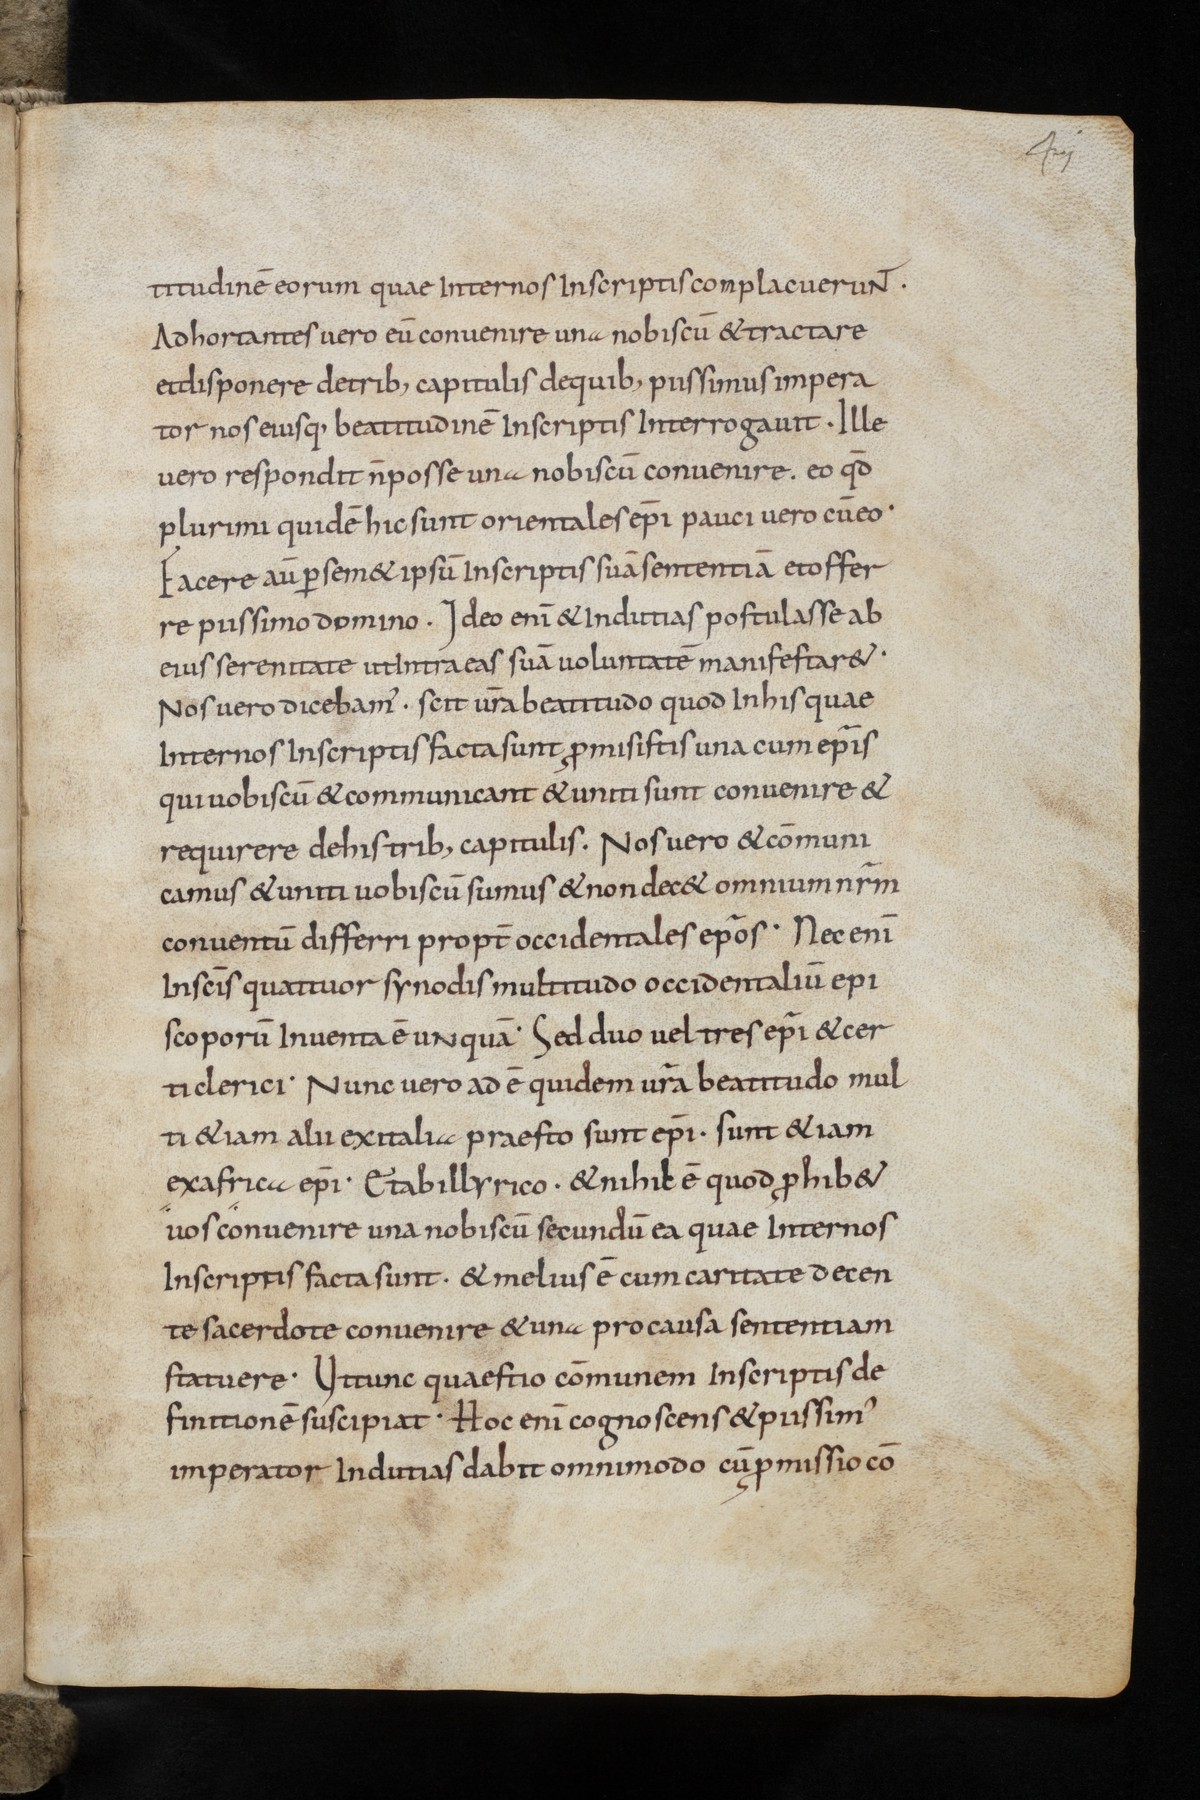 titudinē eorum quae Internos Inscriptis complacueruNT̄.
Adhortantes uero eū conuenire una nobiscū & tractare
etdisponere detrib; capitulis dequib; piissimus impera
tor nos eiusq; beatitudinē Inscriptis Interrogauit. Ille
uero respondit n̄posse una nobiscū conuenire. eo qd̄
plurimi quidē hic sunt orientales ep̄i pauci uero cū eo·
Facere aū ꝑ sem& ipsū Inscriptis suā sententiā etoffer
re piissimo domino. Ideo enī & Indutias postulasse ab
eius serenitate utIntra eas suā uoluntatē manifestar&·
Nos uero dicebam᾽. scit ur̄a beatitudo quod Inhis quae
Internos Inscriptis facta sunt ꝓmisistis una cum ep̄is
qui uobiscū & communicant & uniti sunt conuenire &
requirere dehis trib; capitulis. Nos uero & cōmuni
camus & uniti uobiscū sumus & non dec& omnium nr̄m
conuentū differri propt̄ occidentales ep̄os· Nec enī
Insc̄is quattuor synodis multitudo occidentaliū epi
scoporū Inuenta ē uNquā· Sed duo uel tres ep̄i & cer
ti clerici· Nunc uero ad ē quidem ur̄a beatitudo mul
ti &iam alii exitalia praesto sunt ep̄i. sunt &iam
exafrica ep̄i· Etabillyrico. & nihil ē quod ꝓhib&
uos conuenire una nobiscū secundū ea quae Internos
Inscriptis facta sunt. & melius ē cum caritate decen
te sacerdote conuenire & una pro causa sententiam
statuere· Uttunc quaestio cōmunem Inscriptis de
finitionē suscipiat· Hoc enī cognoscens & piissim᾽
imperator Indutias dabit omnimodo cū ꝓmissio cō